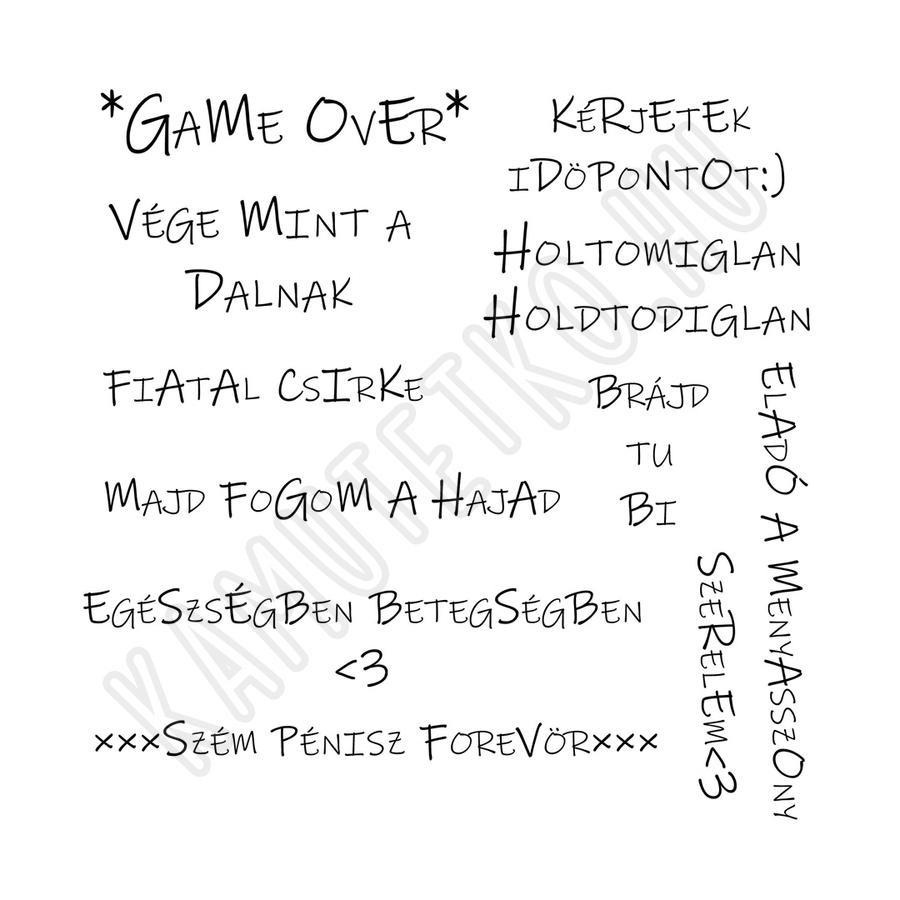 *GaMe OvEr*
VÉGE MINT A
DALNAK
FIATAL CSIRKE
MAJD FOGOM A HAJAD
EGÉSZSÉGBEN BETEGSÉGBEN
<3
×××SZÉM PÉNISZ FOREVÖR×××
KÉRJETEK
IDÖPONTOT:)
HOLTOMIGLAN
HOLDTODIGLAN
BRÁJD
TU
BI
SZERELEM<3
ELADÓ A MENYASSZONY
KAMUTETKO.HU